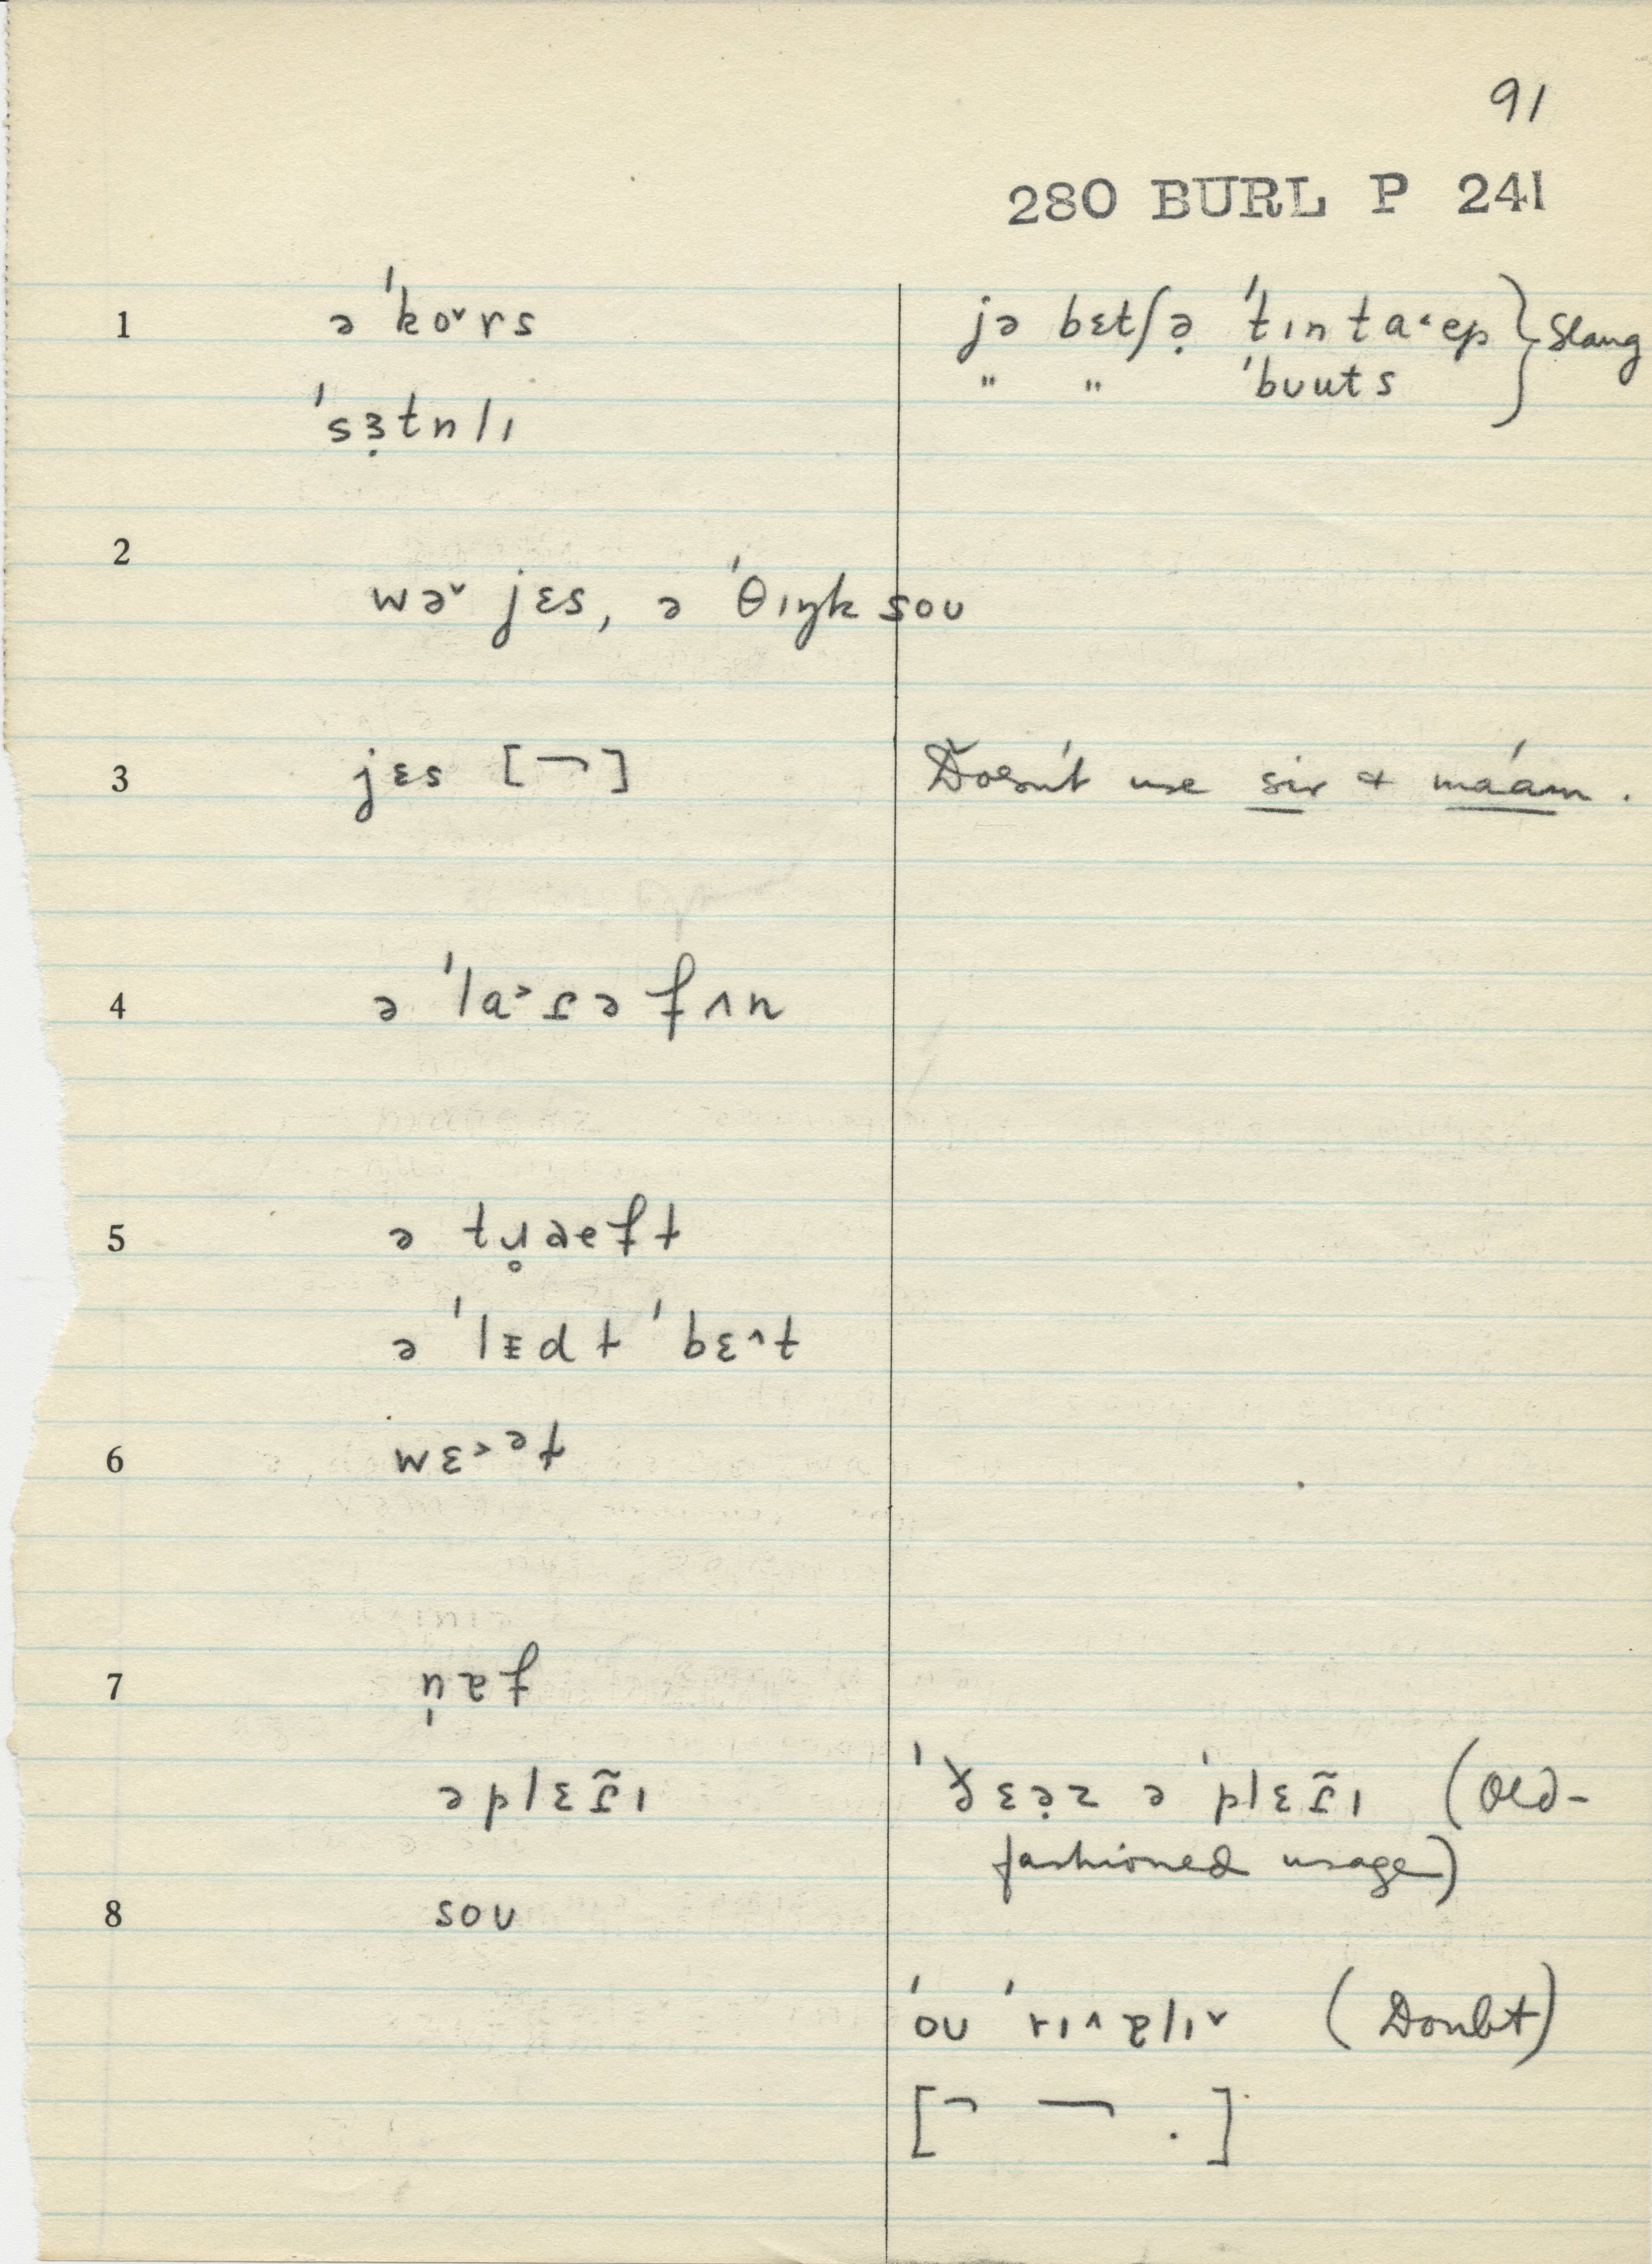 91
280 BURL P 241
1 ə ˈkoˇrs
jə bɛtʃə̣ ˈtɪn taˑep } Slang
" " ˈbuuts
ˈsɜ̣tnlɪ
2
wəˇ jɛs, ə ˈθɪŋk sou
3 jɛs [¬] Doesn't use sir & ma'am .
4 ə ˈla˃ɾə fʌn
5 ə tɹ̥aeft
ə ˈlɪdt ˈbɛ^t
6 wɛ˃˂ət
7 n̩ɐf
ə plɛɾ̃ɪ
ˈðɛə̣z ə ˈplɛɾ̃ɪ (Old-
fashioned usage)
8 sou
ˈou ˈrɪ^ɐlɪˇ (Doubt)
[¬ ¬ .]